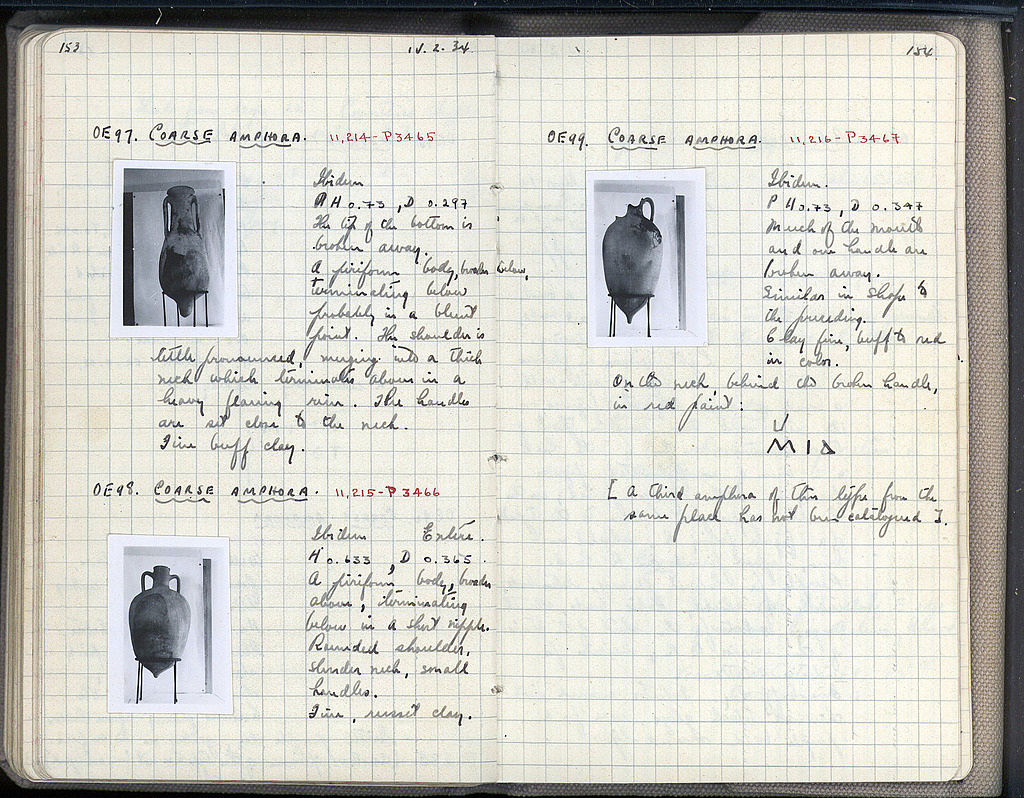 153
IV. 2. 34
OE97. COARSE AMPHORA. 11,214-P3465
Ibidem
P H 0.73, D 0.297
The tip of the bottom is
broken away.
A piriform body, broader below,
terminating below
probably in a blunt
point. The shoulder is
little pronounced, merging into a thick
neck which terminates above in a
heavy flaring rim. The handles
are set close to the neck.
Fine buff clay.
OE98. COARSE AMPHORA. 11,215-P3466
Ibidem Entire.
H 0.633, D 0.365.
A piriform body, broader
above, terminating
below in a short nipple.
Rounded shoulder,
slender neck, small
handles.
Fine, russet clay.
154
OE99. COARSE AMPHORA. 11,216-P3467
Ibidem.
P H 0.73, D 0.347
Much of the mouth
and one handle are
broken away.
Similar in shape to
the preceding.
Clay fine, buff to red
in color.
On the neck, behind the broken handle,
in red paint:
ΜΙΔ
[A third amphora of this type from the
same place has not been catalogued].